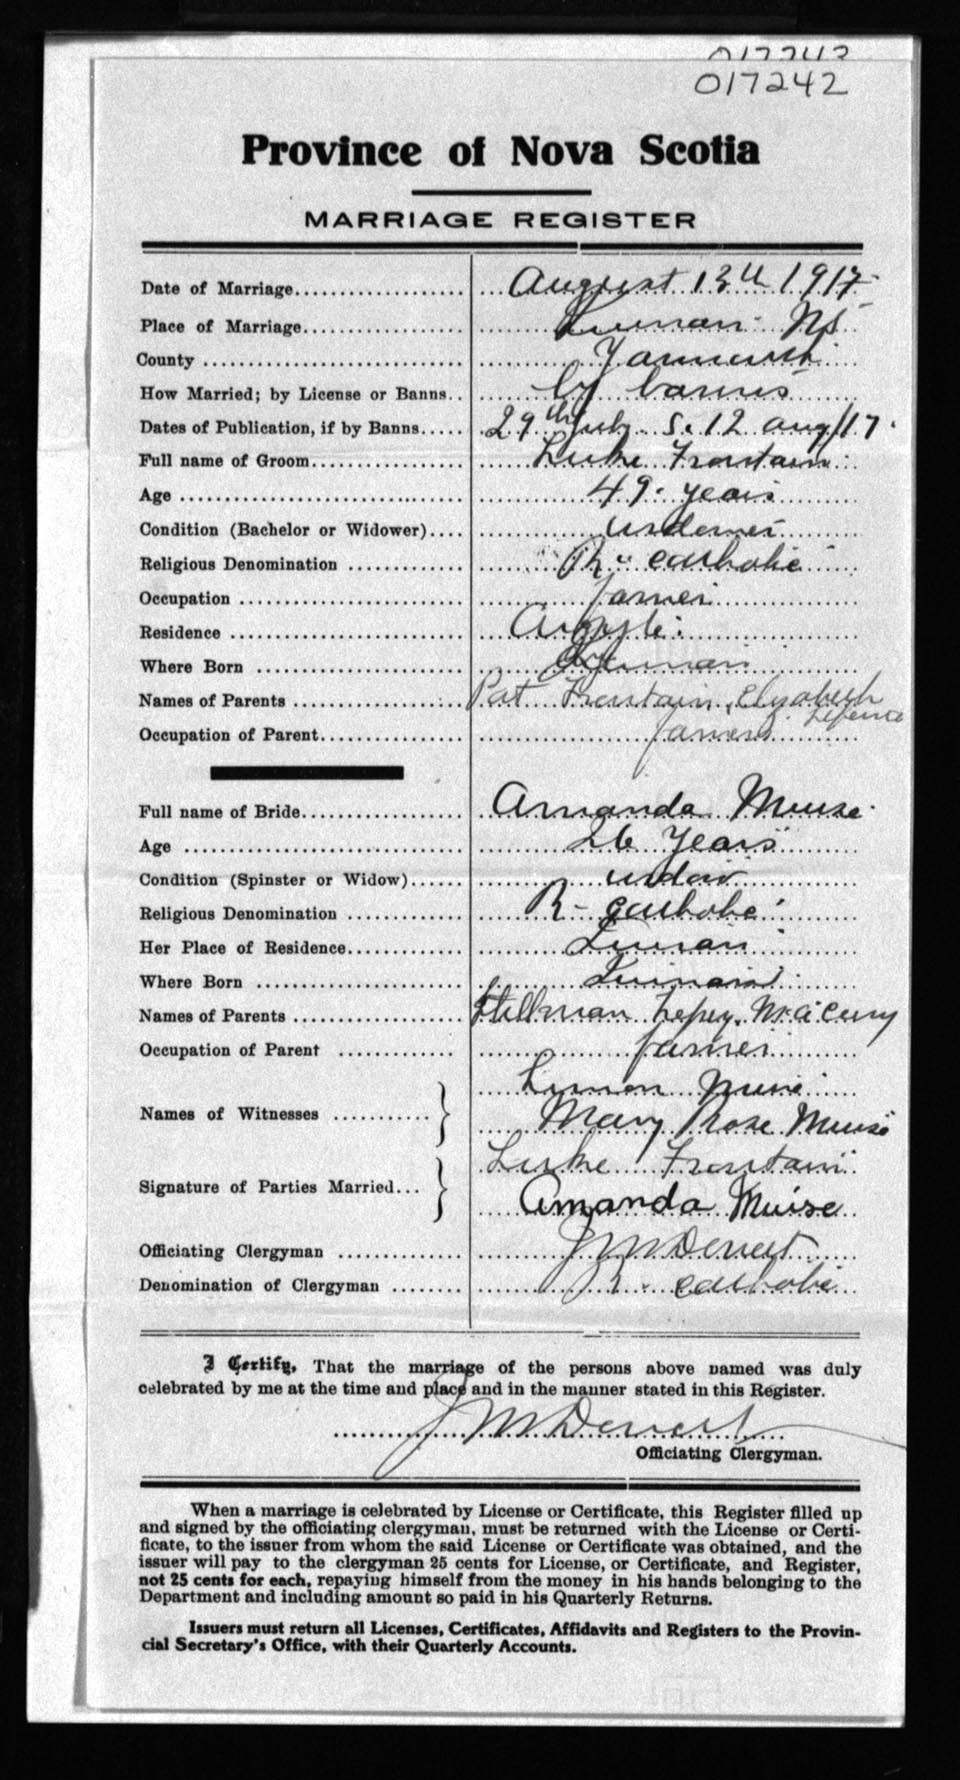 017243
017242
Province of Nova Scotia
MARRIAGE REGISTER
Date of Marriage.................... August 13th 1917
Place of Marriage................. NS
County ............................ Yarmouth
How Married; by License or Banns.. by banns
Dates of Publication, if by Banns..... 29th July 5. 12 aug/17.
Full name of Groom................. Luke Frontain
Age ............................... 49 years
Condition (Bachelor or Widower).... widower
Religious Denomination ............ R. catholic
Occupation ........................ farmer
Residence ......................... Argyle
Where Born ........................
Names of Parents .................. Pat Frontain, Elizabeth
Occupation of Parent............... farmer
Full name of Bride................. Amanda Muise
Age ............................... 26 Years
Condition (Spinster or Widow)...... widow
Religious Denomination ............ R- catholic
Her Place of Residence.............
Where Born ........................
Names of Parents .................. Stillman
Occupation of Parent .............. farmer
Names of Witnesses ........... Simon Muise
Mary Rose Muise
Signature of Parties Married... Luke Frontain
Amanda Muise
Officiating Clergyman .............
Denomination of Clergyman ........ R. catholic
I Certify, That the marriage of the persons above named was duly
celebrated by me at the time and place and in the manner stated in this Register.
Officiating Clergyman.
When a marriage is celebrated by License or Certificate, this Register filled up
and signed by the officiating clergyman, must be returned with the License or Certi-
ficate, to the issuer from whom the said License or Certificate was obtained, and the
issuer will pay to the clergyman 25 cents for License, or Certificate, and Register,
not 25 cents for each, repaying himself from the money in his hands belonging to the
Department and including amount so paid in his Quarterly Returns.
Issuers must return all Licenses, Certificates, Affidavits and Registers to the Provin-
cial Secretary's Office, with their Quarterly Accounts.